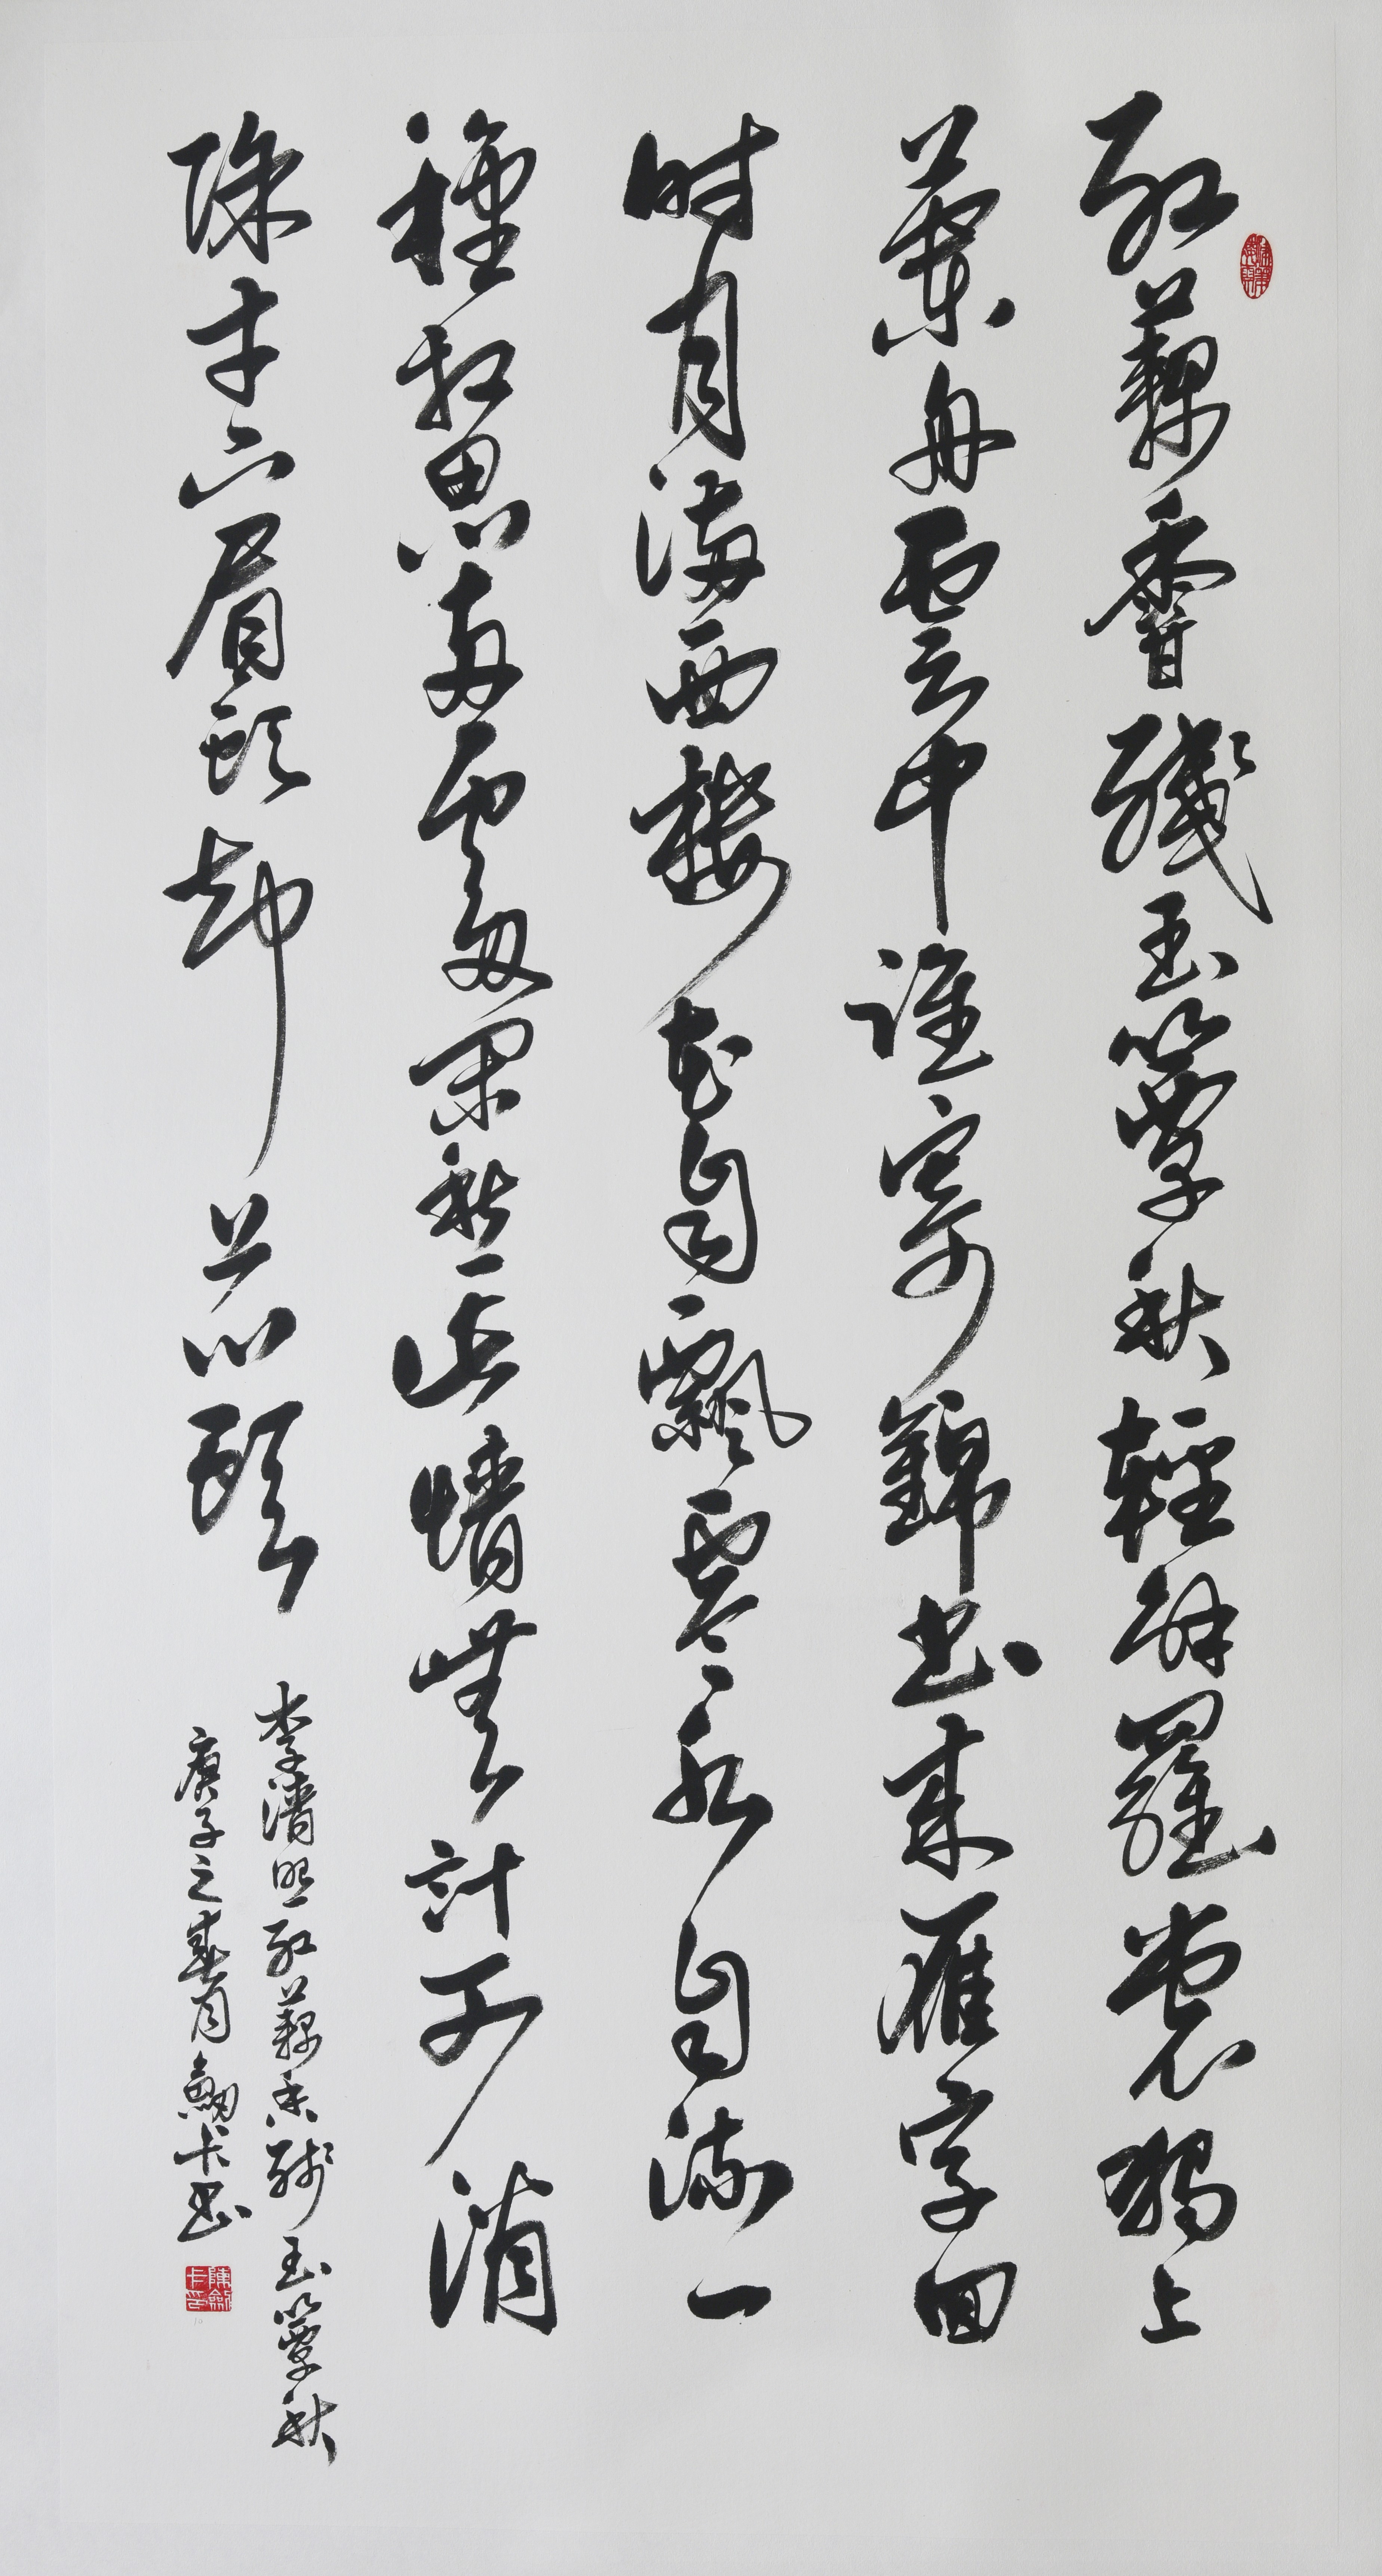 紅藕香殘玉簟秋輕解羅裳獨上
蘭舟雲中誰寄錦書來雁字回
時月滿西樓花自飄零水自流一
種相思兩處閑愁此情無計可消
除才下眉頭却上心頭
李清照紅藕香殘玉簟秋
庚子之春月劍卡書
陳劍卡印